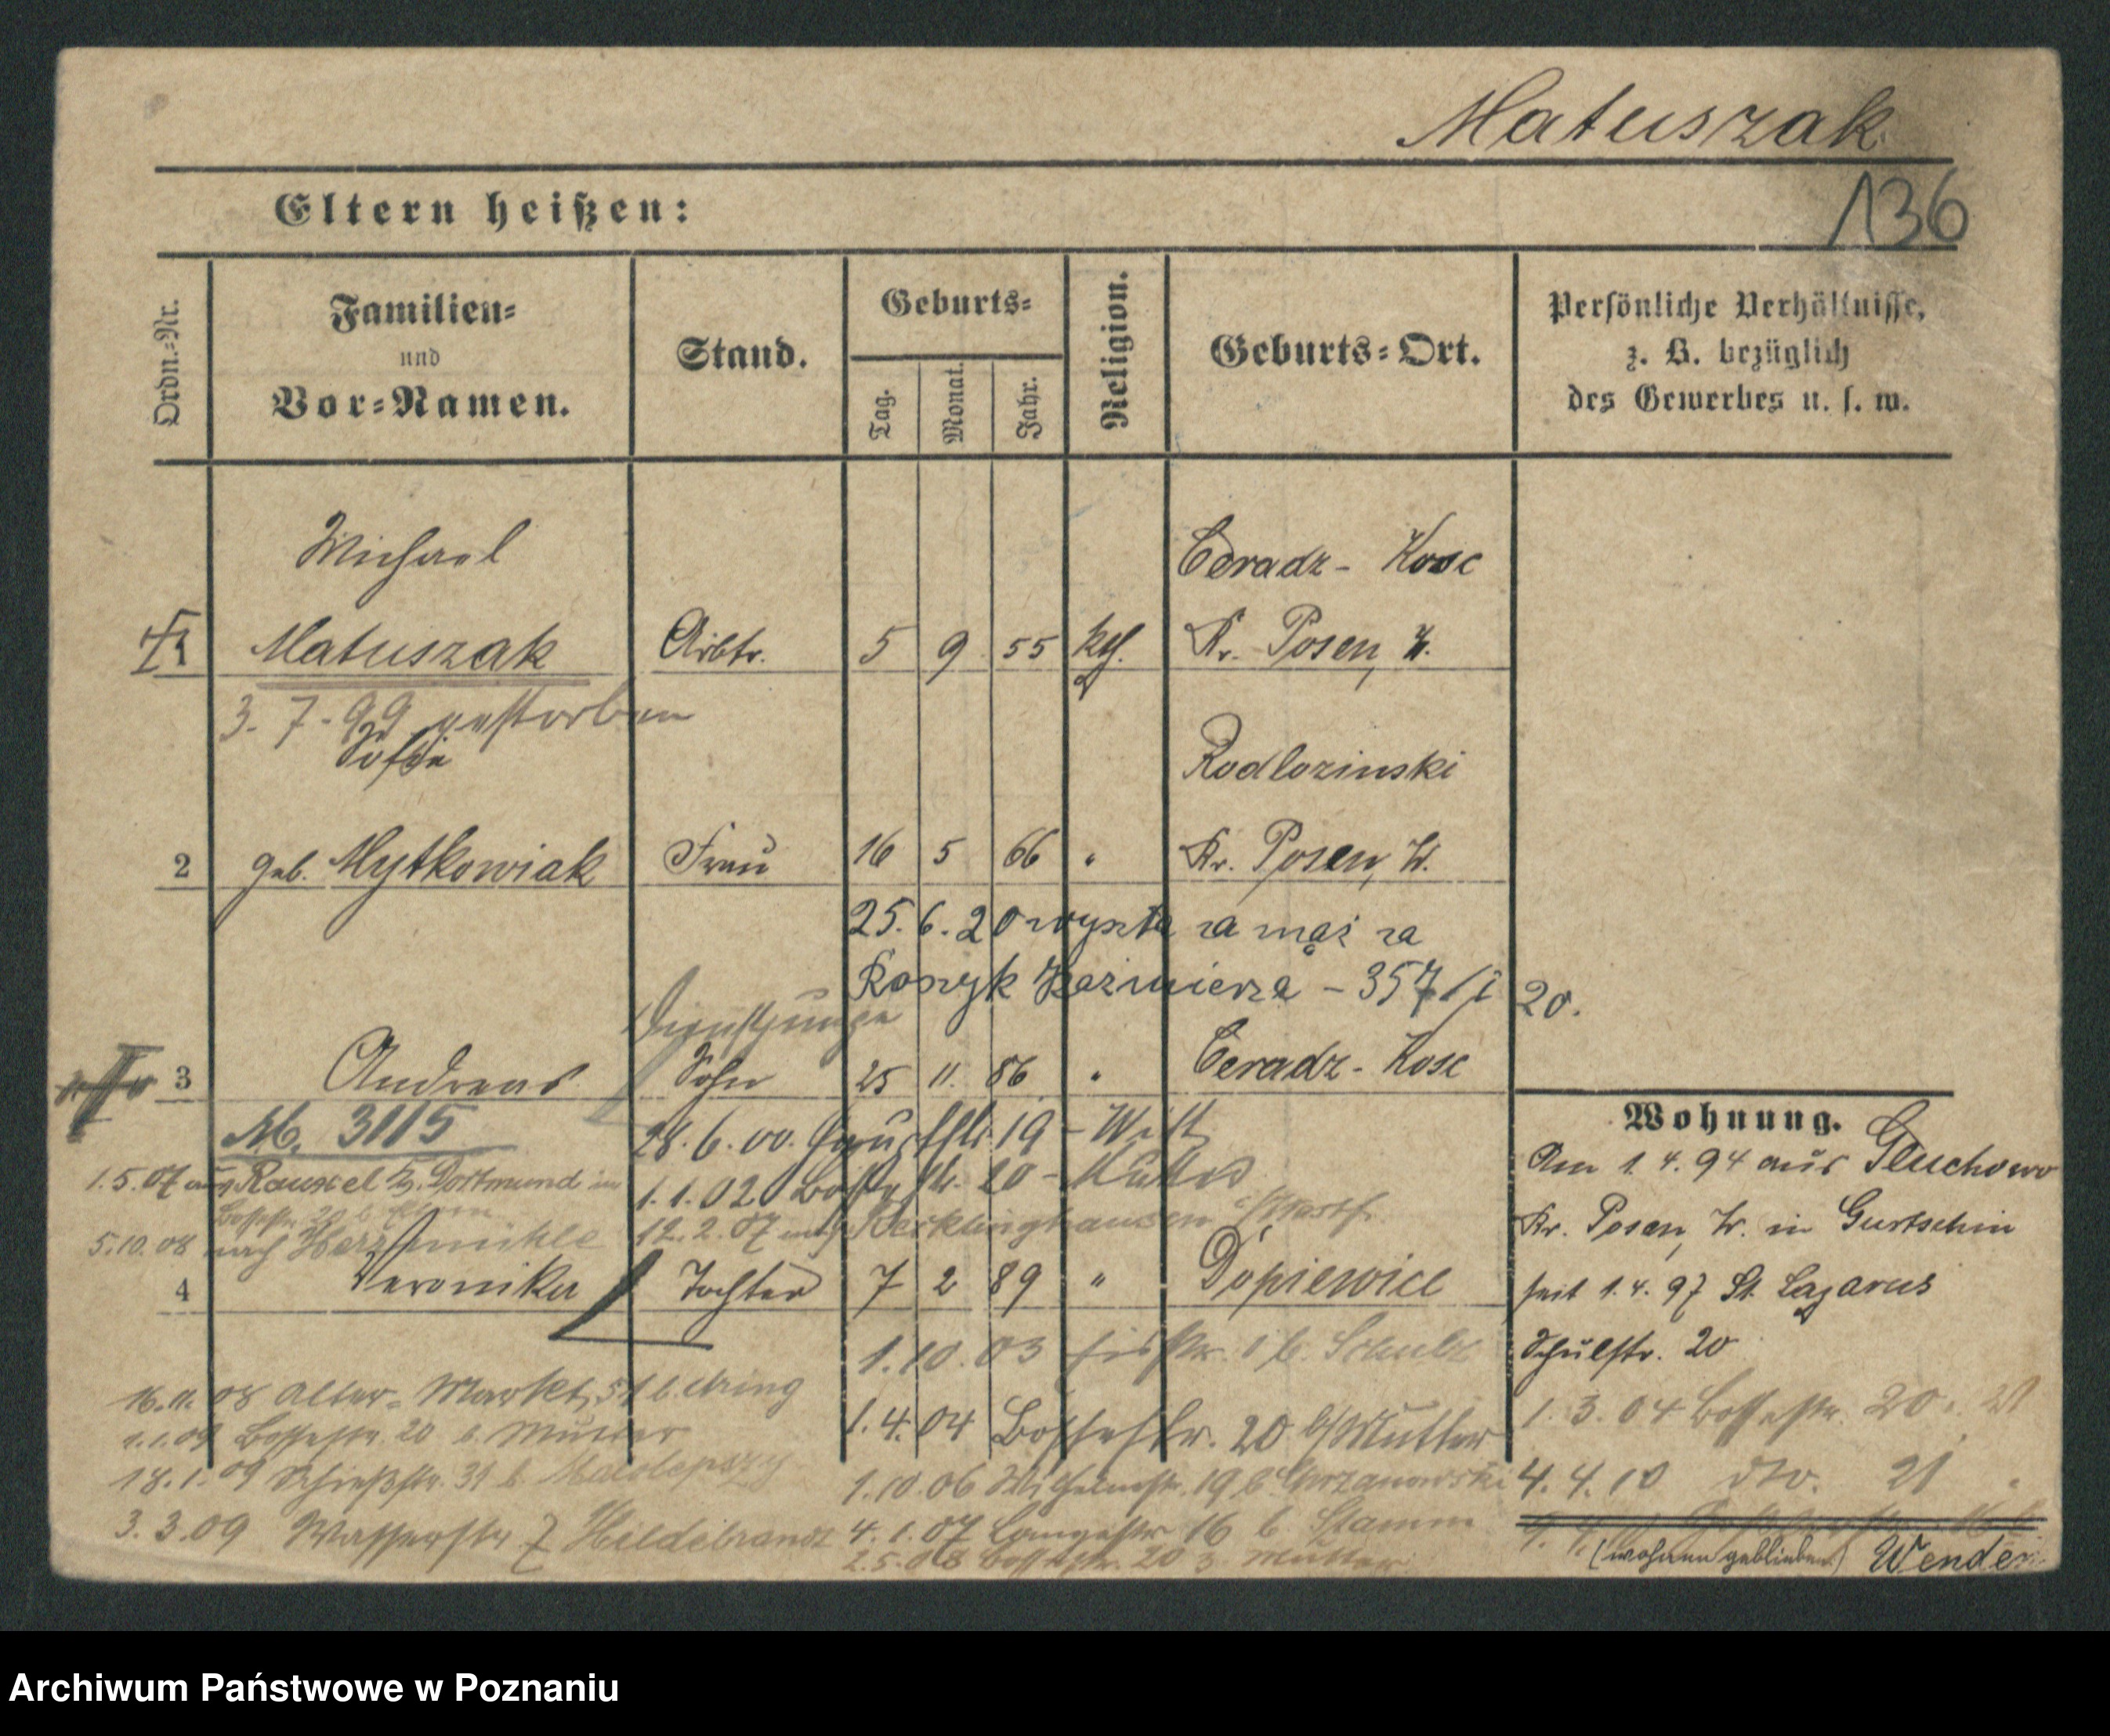 Matuszak
136
Eltern heißen:
Ordn.-Nr.
Familien-
und
Vor-Namen.
Stand.
Geburts-
Tag.
Monat.
Jahr.
Religion.
Geburts-Ort.
Persönliche Verhältnisse,
z. B. bezüglich
des Gewerbes u. s. w.
Michael Ceradz- Kosc
1 Matuszak Arbtr. 5 9 55 kth. Kr. Posen, W.
3. 7. 99 gestorben
Sofie Rodlozinski
2 geb. Mytkowiak Frau 16 5 66 " Kr. Posen, W.
25.6.20 wyszła za mąż za
Kazimierza - 357/I 20.
Dienstjunge
3 Andreas Sohn 25 11. 86 " Ceradz- Kosc
M. 3115
28.6.00. 19 - Witt
1.5.07 aus Rauxel Kr. Dortmund in
Bossestr. 20 b. Eltern
1.1.02 Bossestr. 20 - Mutter
5.10.08 nach Herzmühle
12.2.07 nach Recklinghausen i/Westf.
4 Veronika Tochter 7 2 89 " Dopiewice
1.10.03 b. Schulz
1.4.04 Bossestr. 20 b/Mutter
1.10.06 Wilhelmstr. 19 b.
4.1.07 Langestr. 16 b. Stamm
2.5.08 Bossestr. 20 Mutter
16.11.08 Alter-Markt 51 b.
1.1.09 Bossestr. 20 b. Mutter
18.1.09 Schießstr. 31 b.
3.3.09 Wasserstr. 7 Hildebrandt
Wohnung.
Am 1.4.94 aus Gluchowo
Kr. Posen, W. in Gurtschin
seit 1.4.97 St. Lazarus
Schulstr. 20
1.3.04 Bossestr. 20. 21
4.4.10 dto. 21
(wohnen geblieben) Wenden
Archiwum Państwowe w Poznaniu